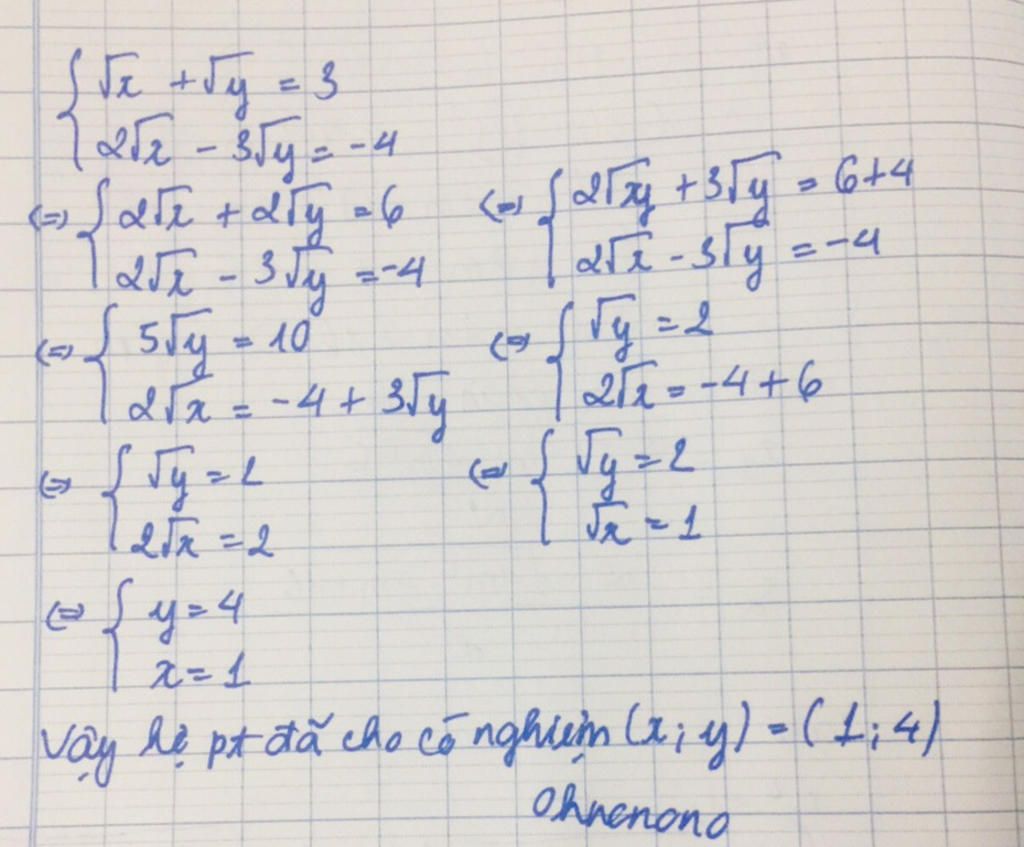 √x + √y = 3
2√x - 3√y = -4
(=) 2√x + 2√y = 6
2√x - 3√y = -4
(=) 2√xy + 3√y = 6+4
2√x - 3√y = -4
(=) 5√y = 10
2√x = -4 + 3√y
(=) √y = 2
2√x = -4 + 6
(=) √y = 2
2√x = 2
(=) √y = 2
√x = 1
(=) y = 4
x = 1
Vậy hệ pt đã cho có nghiệm (x; y) = (1; 4)
Ohnenono